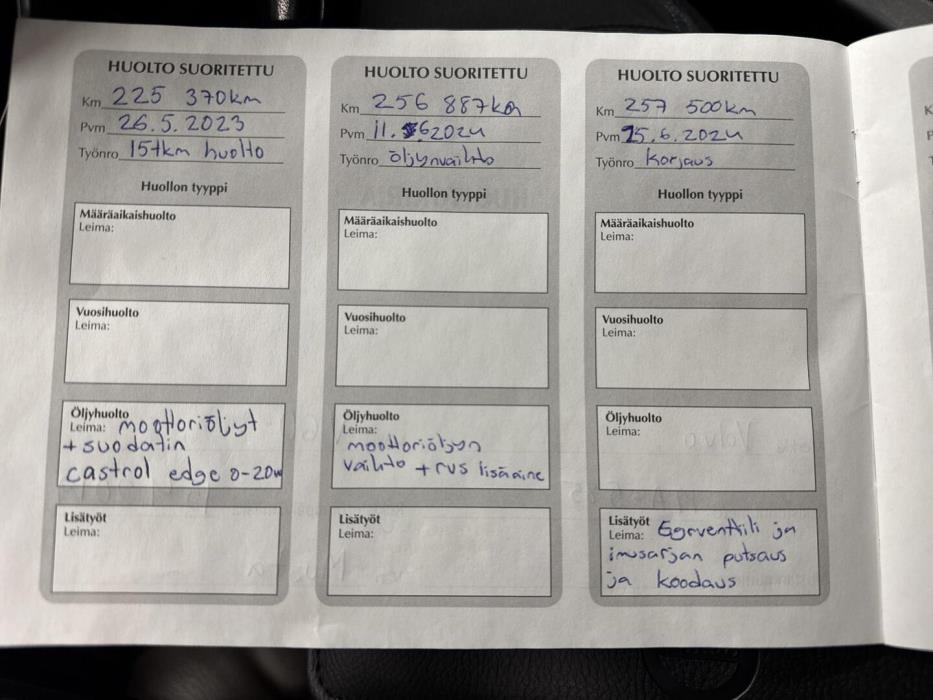 HUOLTO SUORITETTU
Km 225 370km
Pvm 26.5.2023
Työnro 15tkm huolto
Huollon tyyppi
Määräaikaishuolto
Leima:
Vuosihuolto
Leima:
Öljyhuolto
Leima: moottoriöljyt
+ suodatin
castrol edge 0-20w
Lisätyöt
Leima:
HUOLTO SUORITETTU
Km 256 887km
Pvm 11.6.2024
Työnro öljynvaihto
Huollon tyyppi
Määräaikaishuolto
Leima:
Vuosihuolto
Leima:
Öljyhuolto
Leima:
moottoriöljyn
vaihto + rvs lisäaine
Lisätyöt
Leima:
HUOLTO SUORITETTU
Km 257 500km
Pvm 25.6.2024
Työnro Korjaus
Huollon tyyppi
Määräaikaishuolto
Leima:
Vuosihuolto
Leima:
Öljyhuolto
Leima:
Lisätyöt
Leima: Egrventtili ja
imusarjan putsaus
ja koodaus